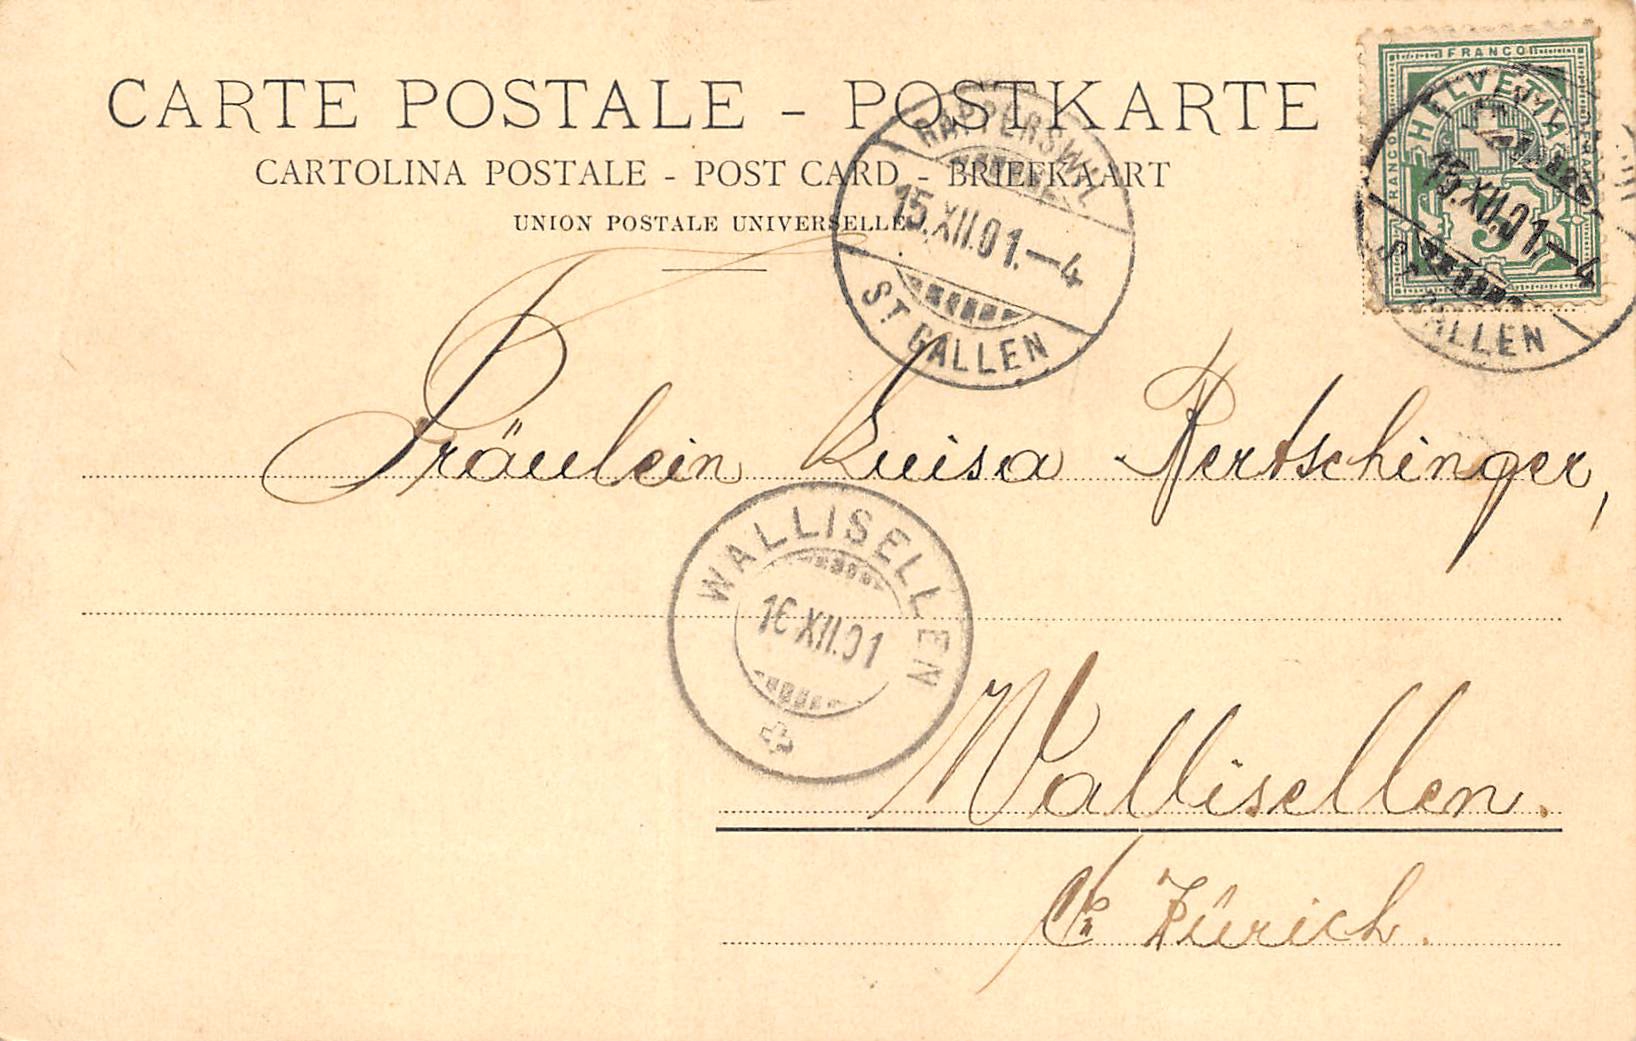 CARTE POSTALE - POSTKARTE
CARTOLINA POSTALE - POST CARD - BRIEFKAART
UNION POSTALE UNIVERSELLE
FRANCO
HELVETIA
FRANCO
FRANCO
5
RAPPERSWIL
15.XII.01.-4
ST. GALLEN
15.XII.01-4
ST. GALLEN
Fräulein Luisa Bertschinger,
WALLISELLEN
16 XII.01
Wallisellen.
Ct. Zürich.